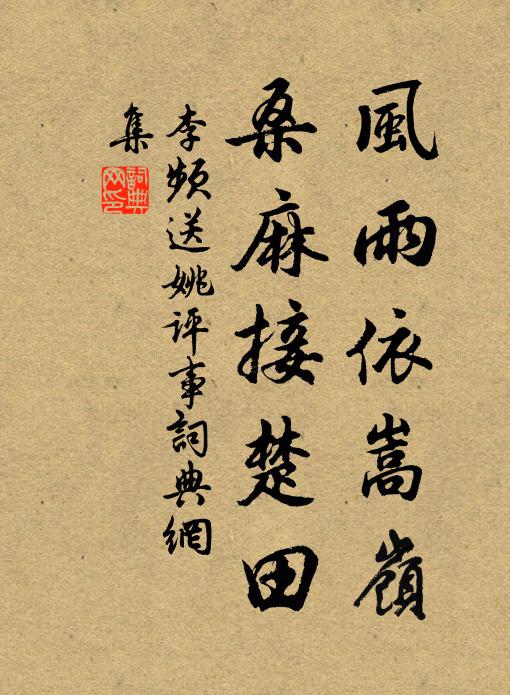 風雨依嵩嶺
桑麻接楚田
李頻送姚評事詞典網
集
詞典
网印